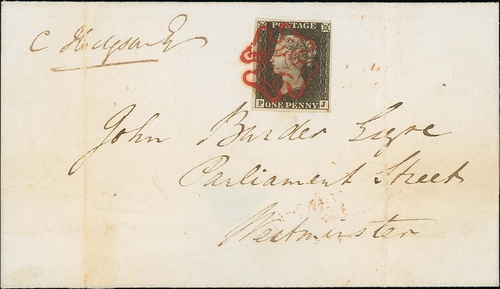 POSTAGE
C Hodgson Esq
P ONE PENNY J
John Burder Esqre
Parliament Street
Westminster